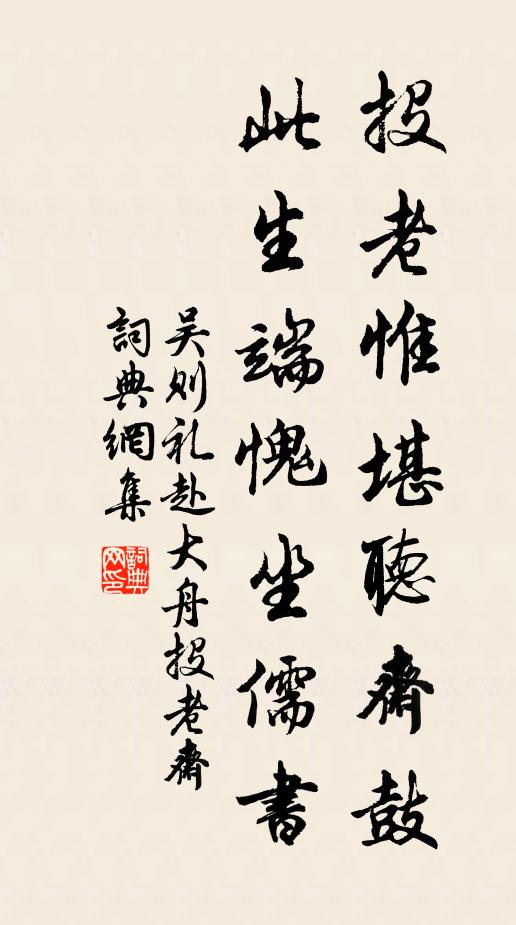 投老惟堪聽齋鼓
此生端愧坐儒書
吴则礼赴大舟投老齋
詞典網集
詞典网印